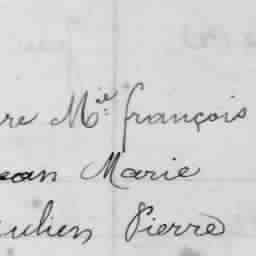 re Mie françois
ean Marie
ulien Pierre